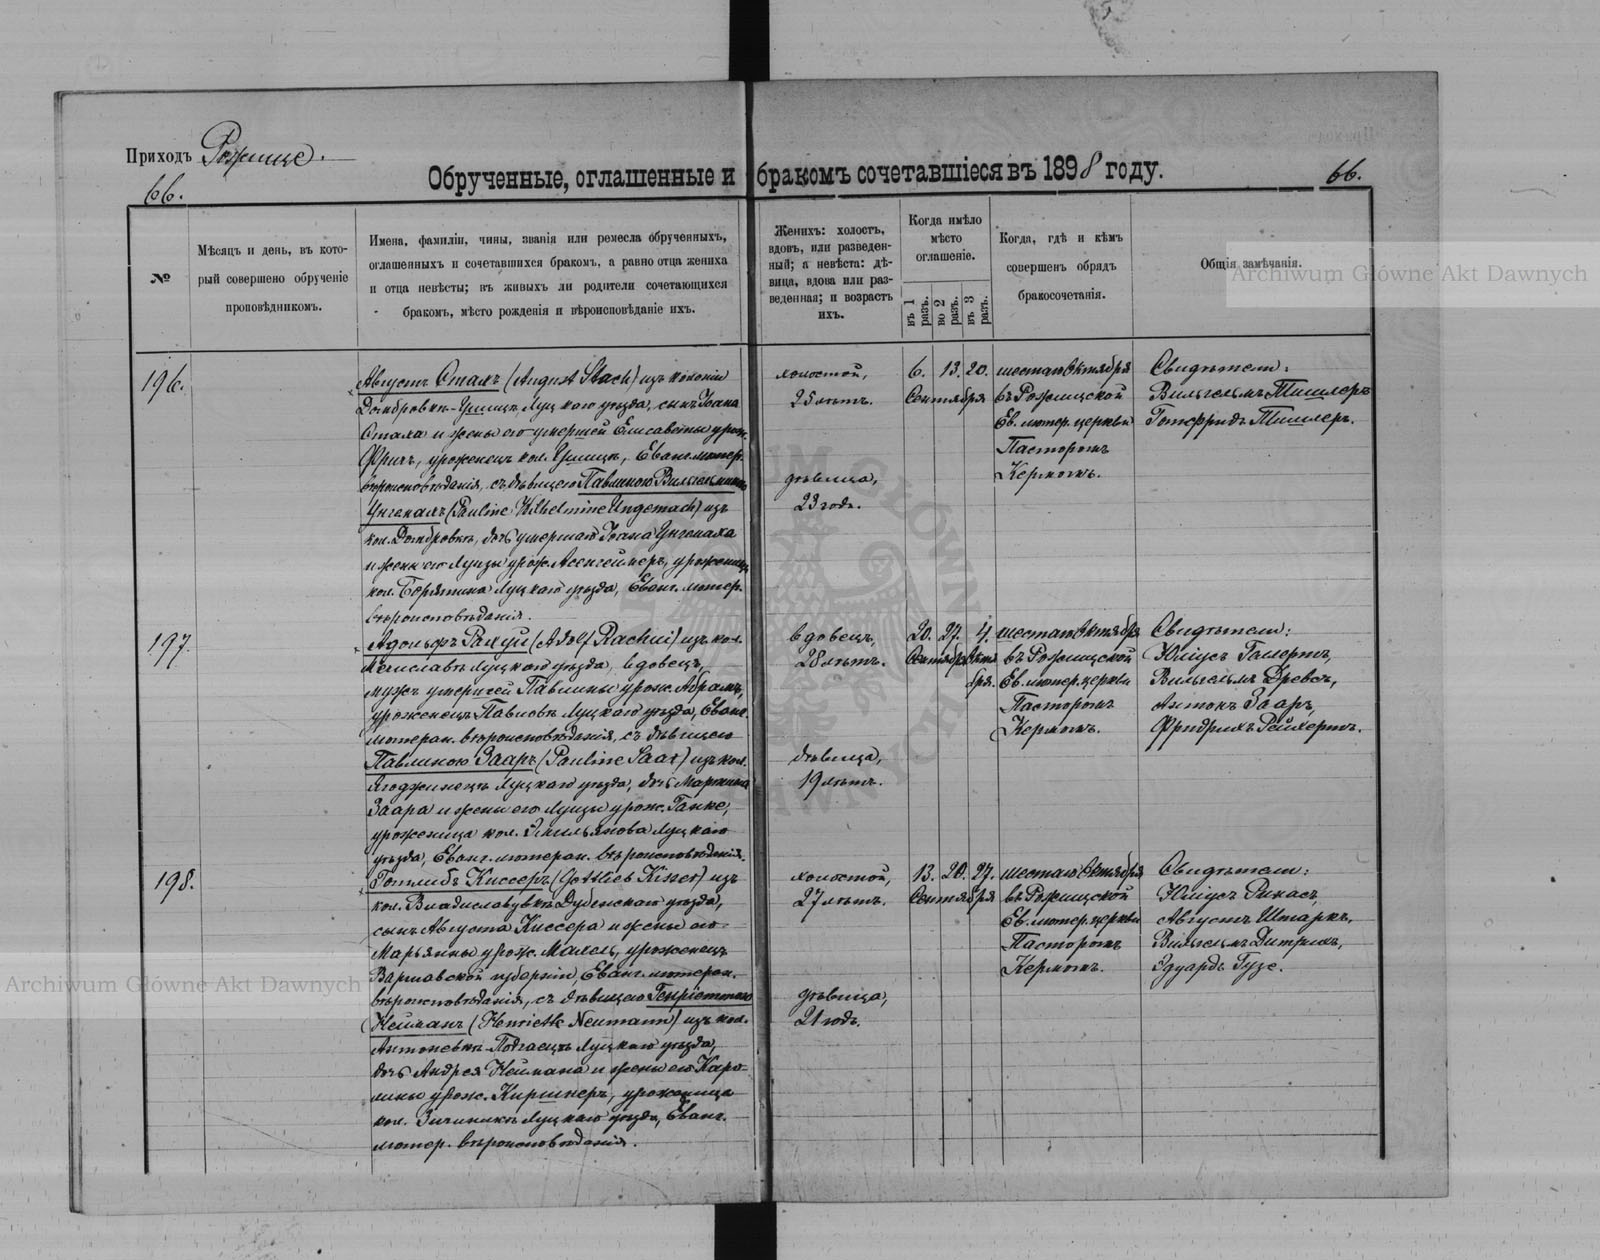 Приходъ Рожище.
66.
Обрученные, оглашенные и бракомъ сочетавшіеся въ 1898 году.
66.
№
Мѣсяцъ и день, въ кото-
рый совершено обрученіе
проповѣдникомъ.
Имена, фамиліи, чины, званія или ремесла обрученныхъ,
оглашенныхъ и сочетавшихся бракомъ, а равно отца жениха
и отца невѣсты; въ живыхъ ли родители сочетающихся
бракомъ, мѣсто рожденія и вѣроисповѣданіе ихъ.
Женихъ: холостъ,
вдовъ, или разведен-
ный; а невѣста: дѣ-
вица, вдова или раз-
веденная; и возрастъ
ихъ.
Когда имѣло
мѣсто
оглашеніе.
въ 1 разъ.
во 2 разъ.
въ 3 разъ.
Когда, гдѣ и кѣмъ
совершенъ обрядъ
бракосочетанія.
Общія замѣчанія.
Archiwum Główne Akt Dawnych
196.
Августъ Стахъ (August Stach) изъ колоніи
Домбровкъ-Ушицкъ Луцкаго уѣзда, сынъ Іоана
Стаха и жены его умершей Елисаветы урож.
Фричъ, уроженецъ кол. Ушицкъ, Еванг. лютер.
вѣроисповѣданія, съ дѣвицею Павлиною Вильгельминою
Унгемахъ (Pauline Wilhelmine Ungemach) изъ
кол. Домбровкъ, дочь умершаго Іоана Унгемаха
и жены его Луизы урож. Асенгеймеръ, уроженица
кол. Борятина Луцкаго уѣзда, Еванг. лютер.
вѣроисповѣданія.
холостой,
25 лѣтъ.
дѣвица,
23 годъ.
6. 13. 20.
Сентября
шестаго Октября
въ Рожищской
Ев. лютер. церкви
Пасторомъ
Кермомъ.
Свидѣтели:
Вильгельмъ Тишлеръ
Готфридъ Тишлеръ.
197.
Адольфъ Рахуй (Adolf Rachui) изъ кол.
Мечиславкъ Луцкаго уѣзда, вдовецъ,
мужъ умершей Павлины урож. Абрамъ,
уроженецъ Павловкъ Луцкаго уѣзда, Еванг.
лютеран. вѣроисповѣданія, съ дѣвицею
Павлиною Зааръ (Pauline Saar) изъ кол.
Ягоджинецъ Луцкаго уѣзда, дочь Мартина
Заара и жены его Луизы урож. Ганке,
уроженица кол. Эмильянова Луцкаго
уѣзда, Еванг. лютеран. вѣроисповѣданія.
вдовецъ,
28 лѣтъ.
дѣвица,
19 лѣтъ.
20. 27. 4.
Сентября Октя
бря.
шестаго Октября
въ Рожищской
Ев. лютер. церкви
Пасторомъ
Кермомъ.
Свидѣтели:
Юліусъ Голертъ,
Вильгельмъ Древсъ,
Антонъ Зааръ,
Фридрихъ Рейхертъ.
198.
Готлибъ Киссеръ (Gottlieb Kisser) изъ
кол. Владиславувкъ Дубенскаго уѣзда,
сынъ Августа Киссера и жены его
Марьянны урож. Махель, уроженецъ
Варшавской губерніи, Еванг. лютеран.
вѣроисповѣданія, съ дѣвицею Генріеттою
Нейманъ (Henriette Neumann) изъ кол.
Антоневкъ-Подгаецъ Луцкаго уѣзда,
дочь Андрея Неймана и жены его Каро-
лины урож. Киршнеръ, уроженица
кол. Луцкаго уѣзда, Еванг.
лютер. вѣроисповѣданія.
холостой,
27 лѣтъ.
дѣвица,
21 годъ.
13. 20. 27.
Сентября
шестаго Октября
въ Рожищской
Ев. лютер. церкви
Пасторомъ
Кермомъ.
Свидѣтели:
Юліусъ Рикасъ,
Августъ Штаркъ,
Вильгельмъ Дитрихъ,
Эдуардъ Гузе.
Archiwum Główne Akt Dawnych